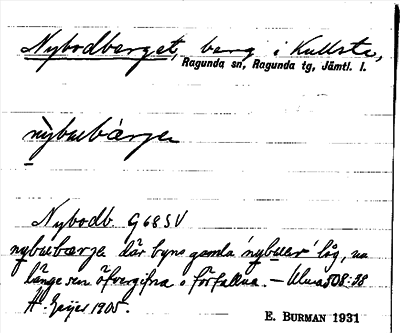 Nybodberget, berg i Kullsta,
Ragunda sn, Ragunda tg, Jämtl. l.
nybuebærje
Nybodb. G68SV
nybuebærje där byns gamla 'nybuer' låg, nu
länge sen öfvergifna o förfallna. – Ulma 508:38
H. Geijer 1905.
E. BURMAN 1931